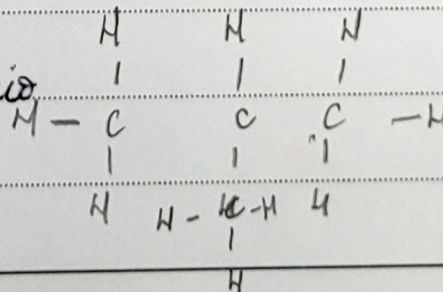 io
H H H
H - C C C - H
H H - C - H H
H